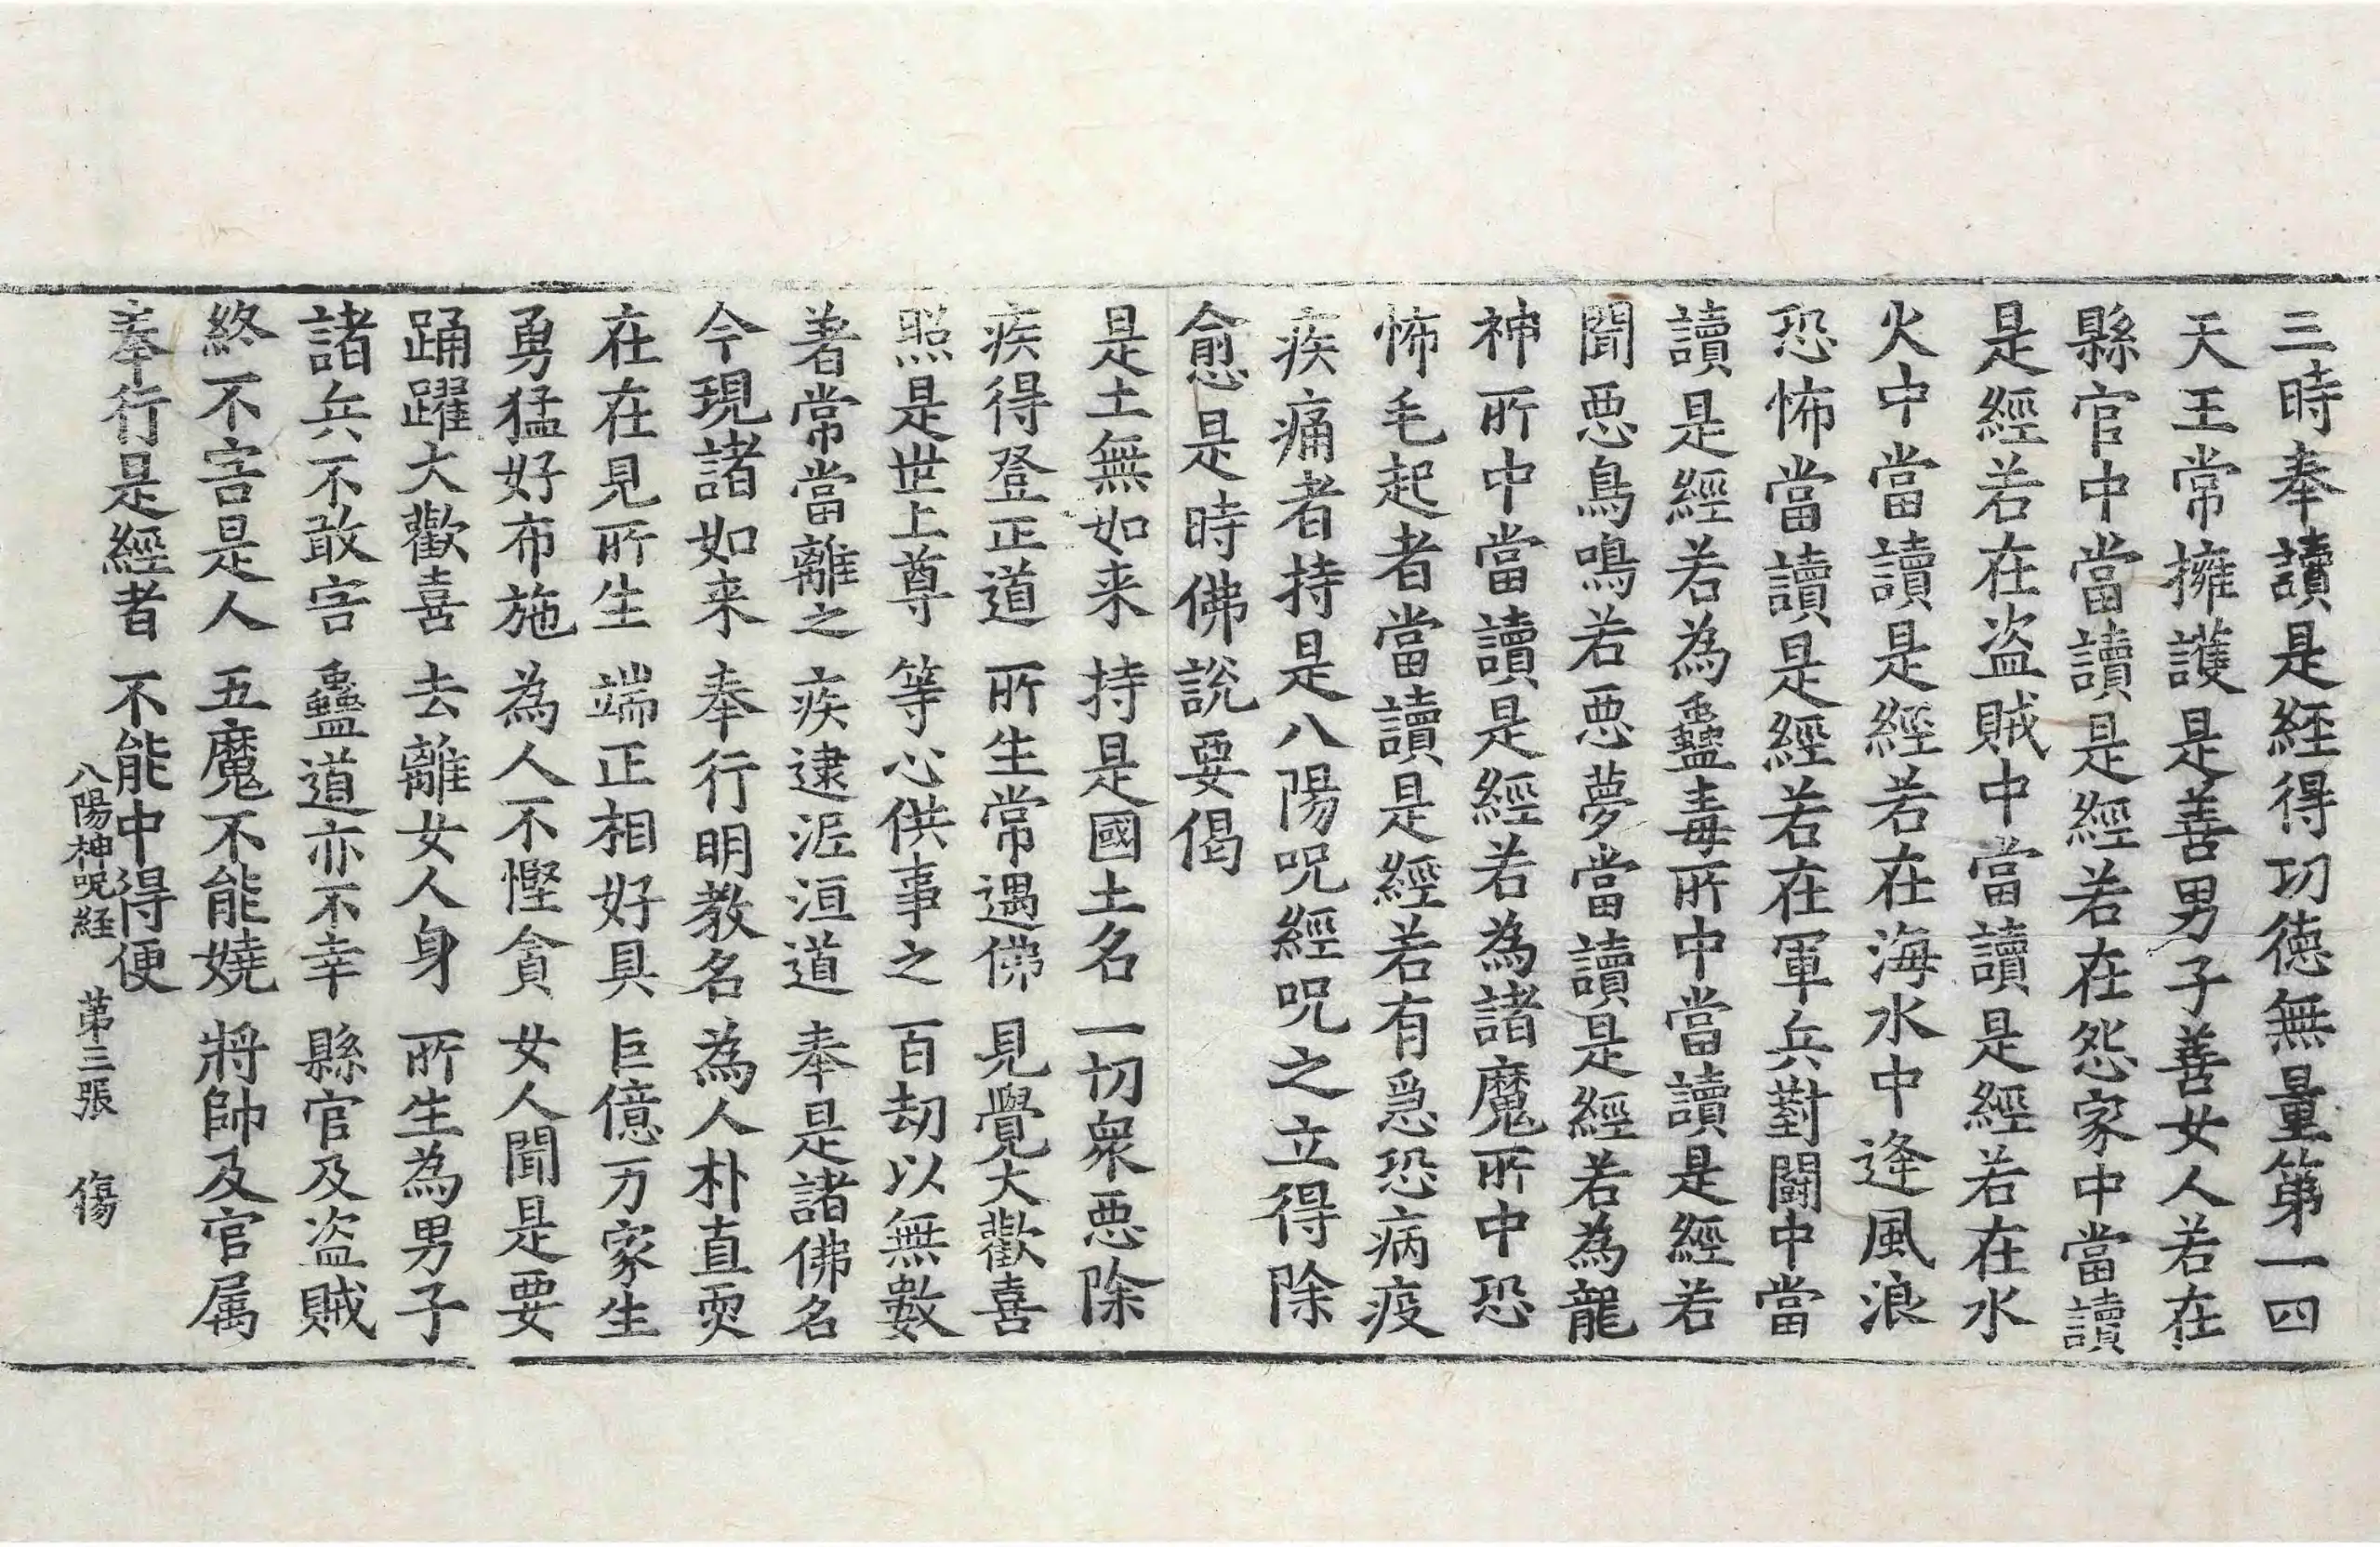 三時奉讀是経得功徳無量第一四
天王常擁護是善男子善女人若在
縣官中當讀是經若在怨家中當讀
是經若在盗賊中當讀是經若在水
火中當讀是經若在海水中逢風浪
恐怖當讀是經若在軍兵對鬪中當
讀是經若為蠱毒所中當讀是經若
聞惡鳥鳴若惡夢當讀是經若為龍
神所中當讀是經若為諸魔所中恐
怖毛起者當讀是經若有急恐病疫
疾痛者持是八陽呪經呪之立得除
愈是時佛說要偈
是土無如来 持是國土名 一切衆惡除
疾得登正道 所生常遇佛 見覺大歡喜
照是世上尊 等心供事之 百劫以無數
著常當離之 疾逮泥洹道 奉是諸佛名
今現諸如来 奉行明教名 為人朴直耎
在在見所生 端正相好具 巨億万家生
勇猛好布施 為人不慳貪 女人聞是要
踊躍大歡喜 去離女人身 所生為男子
諸兵不敢害 蠱道亦不幸 縣官及盗賊
終不害是人 五魔不能嬈 將帥及官属
奉行是經者 不能中得便
八陽神呪経 第三張 傷